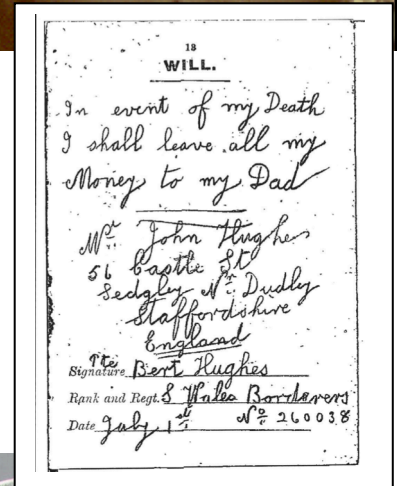 13
WILL.
In event of my Death
I shall leave all my
Money to my Dad
Mr John Hughes
56 Castle St
Sedgley Nr Dudly
Staffordshire
England
Signature Pte Bert Hughes
Rank and Regt. S Wales Borderers
Date July 1st No 260038